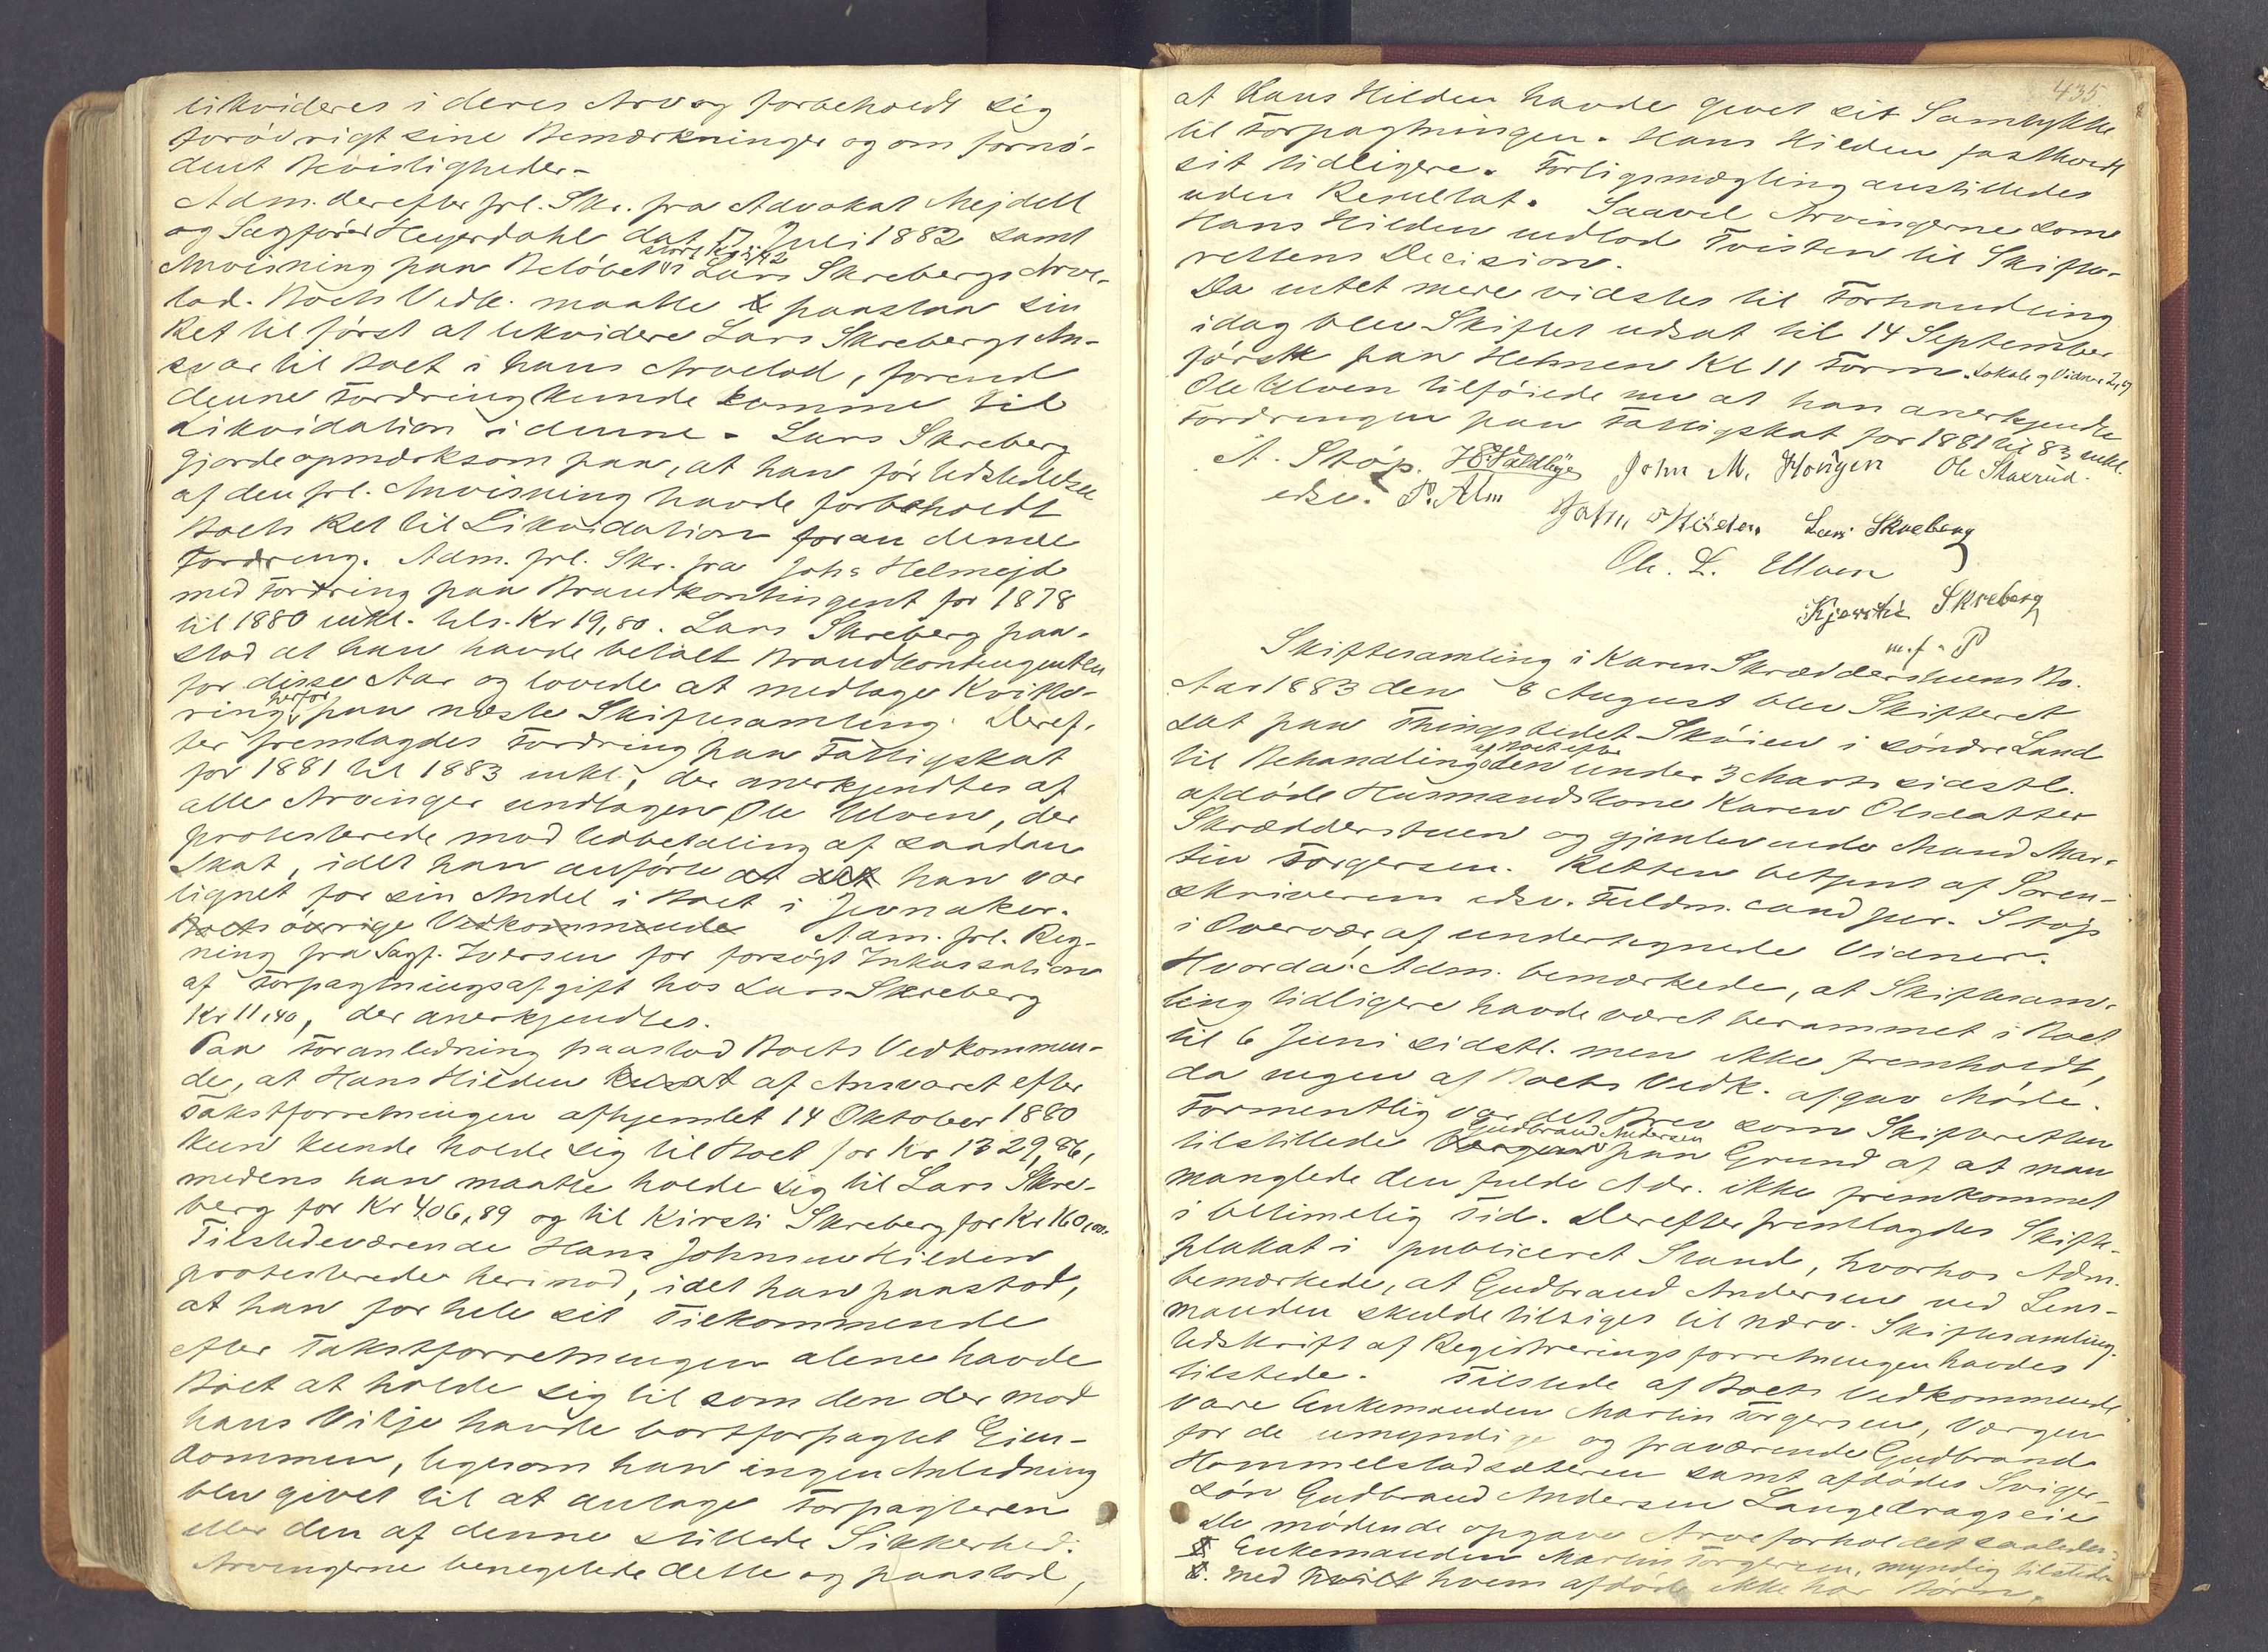 likvideres i deres Arv og forbeholdt sig
forøvrigt sine Bemærkninger og om fornø-
dent Bevisligheder.-
Adm. derefter frl. Skr. fra Advokat Mejdell
og Sagfører Heyerdahl dat 17 Juli 1882 samt
Anvisning paa Beløbet i Lars Skrebergs Arve-
lod. Boets Vedk. maatte paastaa sin
Ret til først at likvidere Lars Skrebergs An-
svar til Boet i hans Arvelod, forend
denne Fordring kunde komme til
Likvidation i denne. Lars Skreberg
gjorde opmærksom paa, at han før Udstedelsen
af den frl. Anvisning havde forbeholdt
Boets Ret til Likvidation foran denne
Fordring. Adm. frl. Skr. fra Johs Helmejd
med Fordring paa Brandkontingent for 1878
til 1880 inkl. tils. Kr 19,80. Lars Skreberg paa-
stod at han havde betalt Brandkontingenten
for disse Aar og lovede at medtage Kvitte-
ring herfor paa næste Skiftesamling. Deref-
ter fremlagdes Fordring paa Fattigskat
for 1881 til 1883 inkl., der anerkjendtes af
alle Arvinger undtagen Ole Ulven, der
protesterede mod Udbetaling af saadan
Skat, idet han anførte at det han var
lignet for sin Andel i Boet i Jevnaker.
Boets øvrige Vedkommende Adm. frl. Reg-
ning fra Sagf. Iversen for forsøgt Inkassation
af Forpagtningsafgift hos Lars Skreberg
Kr 11,40, der anerkjendtes.
Paa Foranledning paastod Boets Vedkommen-
de, at Hans Hilden af Ansvaret efter
Takstforretningen afhjemlet 14 Oktober 1880
kun kunde holde sig til Boet for Kr 1329,86,
medens han maatte holde sig til Lars Skre-
berg for Kr 406,89 og til Kirsti Skreberg for Kr 160,00.
Tilstedeværende Hans Johnsen Hilden
protesterede herimod, idet han paastod,
at han for hele sit Tilkommende
efter Takstforretningen alene havde
Boet at holde sig til som den der mod
hans Vilje havde bortforpagtet Eien-
dommen, ligesom han ingen Anledning
blev givet til at antage Forpagteren
eller den af denne stillede Sikkerhed.
Arvingerne benegtede dette og paastod,
435
at Hans Hilden havde givet sit Samtykke
til Forpagtningen. Hans Hilden fastholdt
sit tidligere. Forligsmægling anstilledes
uden Resultat. Saavel Arvingerne som
Hans Hilden indlod Tvisten til Skifte-
rettens Decision.
Da intet mere vidstes til Forhandling
idag blev Skiftet udsat til 14 September
førstk paa Helmen Kl 11 Form. Lokale og Vidner
Ole Ulven tilføiede nu at han anerkjendte
Fordringen paa Fattigskat for 1881 til 83 inkl.
A. Støp. H. Waldbye John M. Hougen Ole Skaxrud.
edsv. P. Alm
John Hilden Lars Skreberg
Ole. L. Ulven
Kjersti Skreberg
m. f. P
Skiftesamling i Karen Skrædderstuens Bo.
Aar 1883 den 8 August blev Skifteret
sat paa Thingstedet Skøien i søndre Land
til Behandling af Boet efter den under 3 Marts sidstl.
afdøde Husmandskone Karen Olsdatter
Skrædderstuen og gjenlevende Mand Mar-
tin Torgersen. Retten betjent af Soren-
skriverens edsv. Fuldm. cand jur. Støp
i Overvær af undertegnede Vidner.
Hvorda: Adm. bemærkede, at Skiftesam-
ling tidligere havde været berammet i Boet
til 6 Juni sidstl. men ikke fremholdt,
da ingen af Boets Vedk. afgav Møde.
Formentlig var det Brev som Skifteretten
tilstillede Gudbrand Andersen paa Grund af at man
manglede den fulde Adr. ikke fremkommet
i betimelig Tid. Derefter fremlagdes Skifte-
plakat i publiceret Stand, hvorhos Adm.
bemærkede, at Gudbrand Andersen ved Lens-
manden skulde tilsiges til nærv. Skiftesamling.
Udskrift af Registreringsforretningen havdes
tilstede. Tilstede af Boets Vedkommende
vare Enkemanden Martin Torgersen, Værgen
for de umyndige og fraværende Gudbrand
Hommelstadsæteren samt afdødes Sviger-
søn Gudbrand Andersen Langedragseie
De mødende opgave Arveforholdet saaledes:
Enkemanden Martin Torgersen, myndig tilstede
med hvem afdøde ikke har Børn.